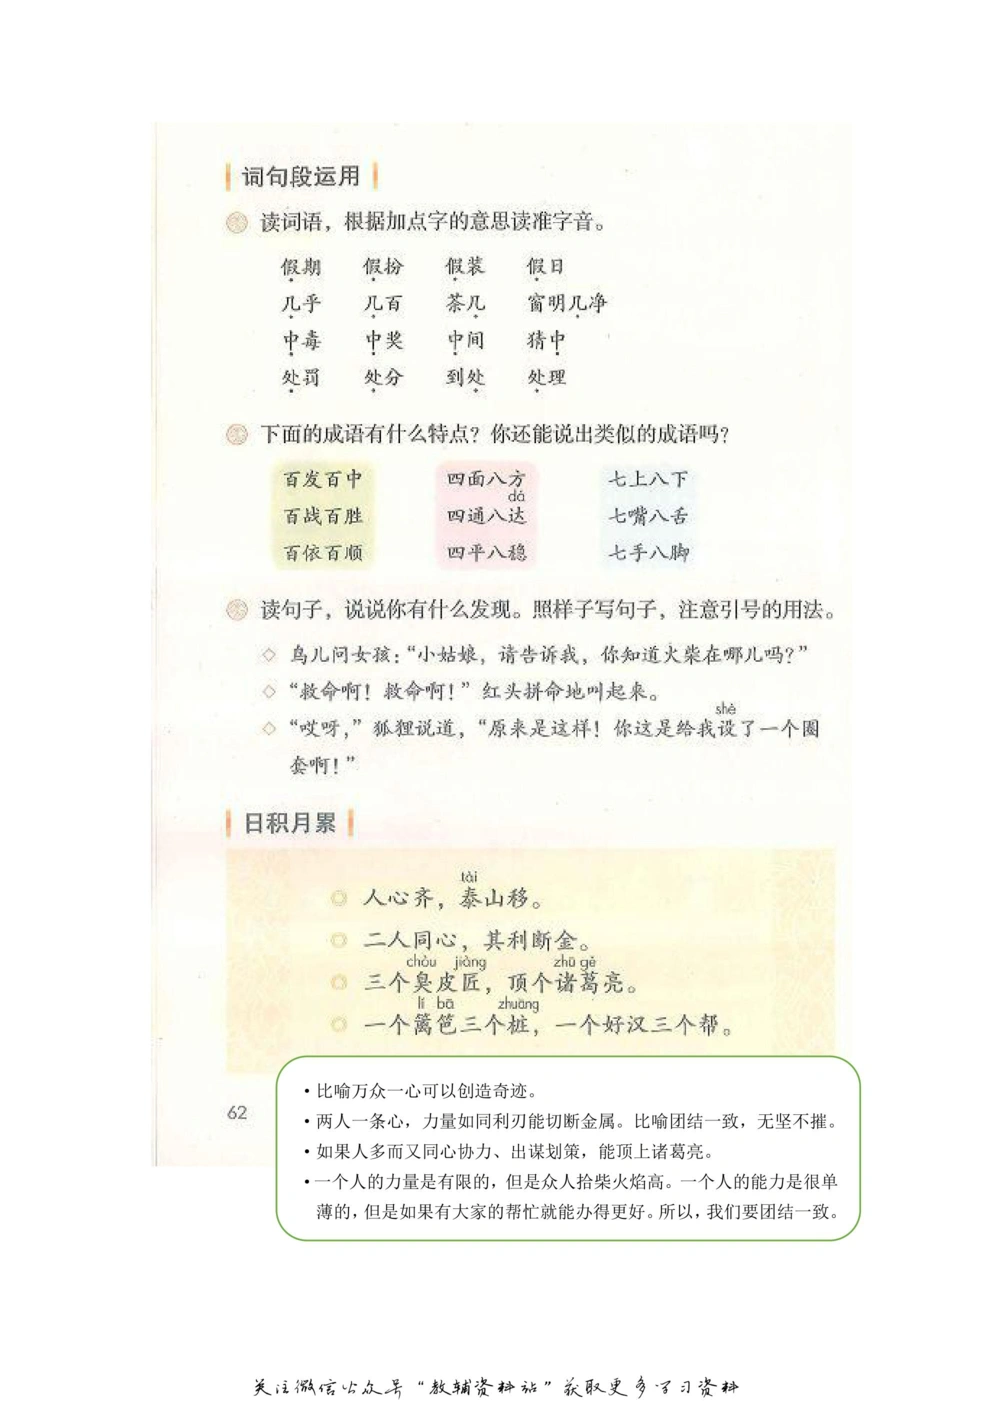 词句段运用
读词语，根据加点字的意思读准字音。
假期 假扮 假装 假日
几乎 几百 茶几 窗明几净
中毒 中奖 中间 猜中
处罚 处分 到处 处理
下面的成语有什么特点？你还能说出类似的成语吗？
百发百中 四面八方 七上八下
dá
百战百胜 四通八达 七嘴八舌
百依百顺 四平八稳 七手八脚
读句子，说说你有什么发现。照样子写句子，注意引号的用法。
◇ 鸟儿问女孩：“小姑娘，请告诉我，你知道火柴在哪儿吗？”
◇ “救命啊！救命啊！”红头拼命地叫起来。
shè
◇ “哎呀，”狐狸说道，“原来是这样！你这是给我设了一个圈
套啊！”
日积月累
tài
人心齐，泰山移。
二人同心，其利断金。
chòu jiàng zhū gě
三个臭皮匠，顶个诸葛亮。
lí bā zhuāng
一个篱笆三个桩，一个好汉三个帮。
·比喻万众一心可以创造奇迹。
62
·两人一条心，力量如同利刃能切断金属。比喻团结一致，无坚不摧。
·如果人多而又同心协力、出谋划策，能顶上诸葛亮。
·一个人的力量是有限的，但是众人拾柴火焰高。一个人的能力是很单
薄的，但是如果有大家的帮忙就能办得更好。所以，我们要团结一致。
关注微信公众号“教辅资料站”获取更多学习资料